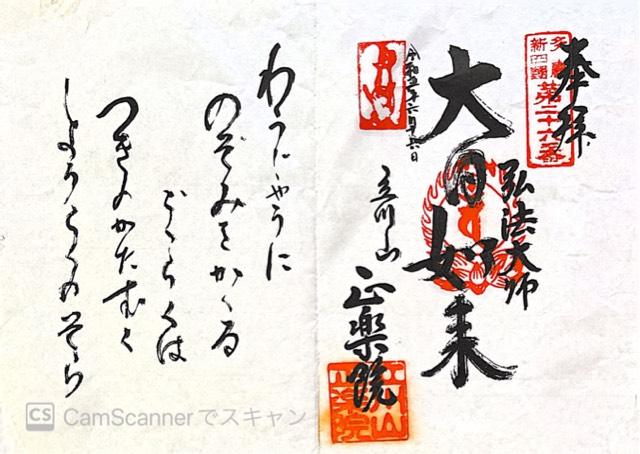 奉拝
多摩
新四國
第二十六番
弘法大師
大日如来
立川山
正楽院
わうじやうに
のぞみをかくる
ごくらくは
つきのかたむく
しようらくのそら
CS CamScannerでスキャン